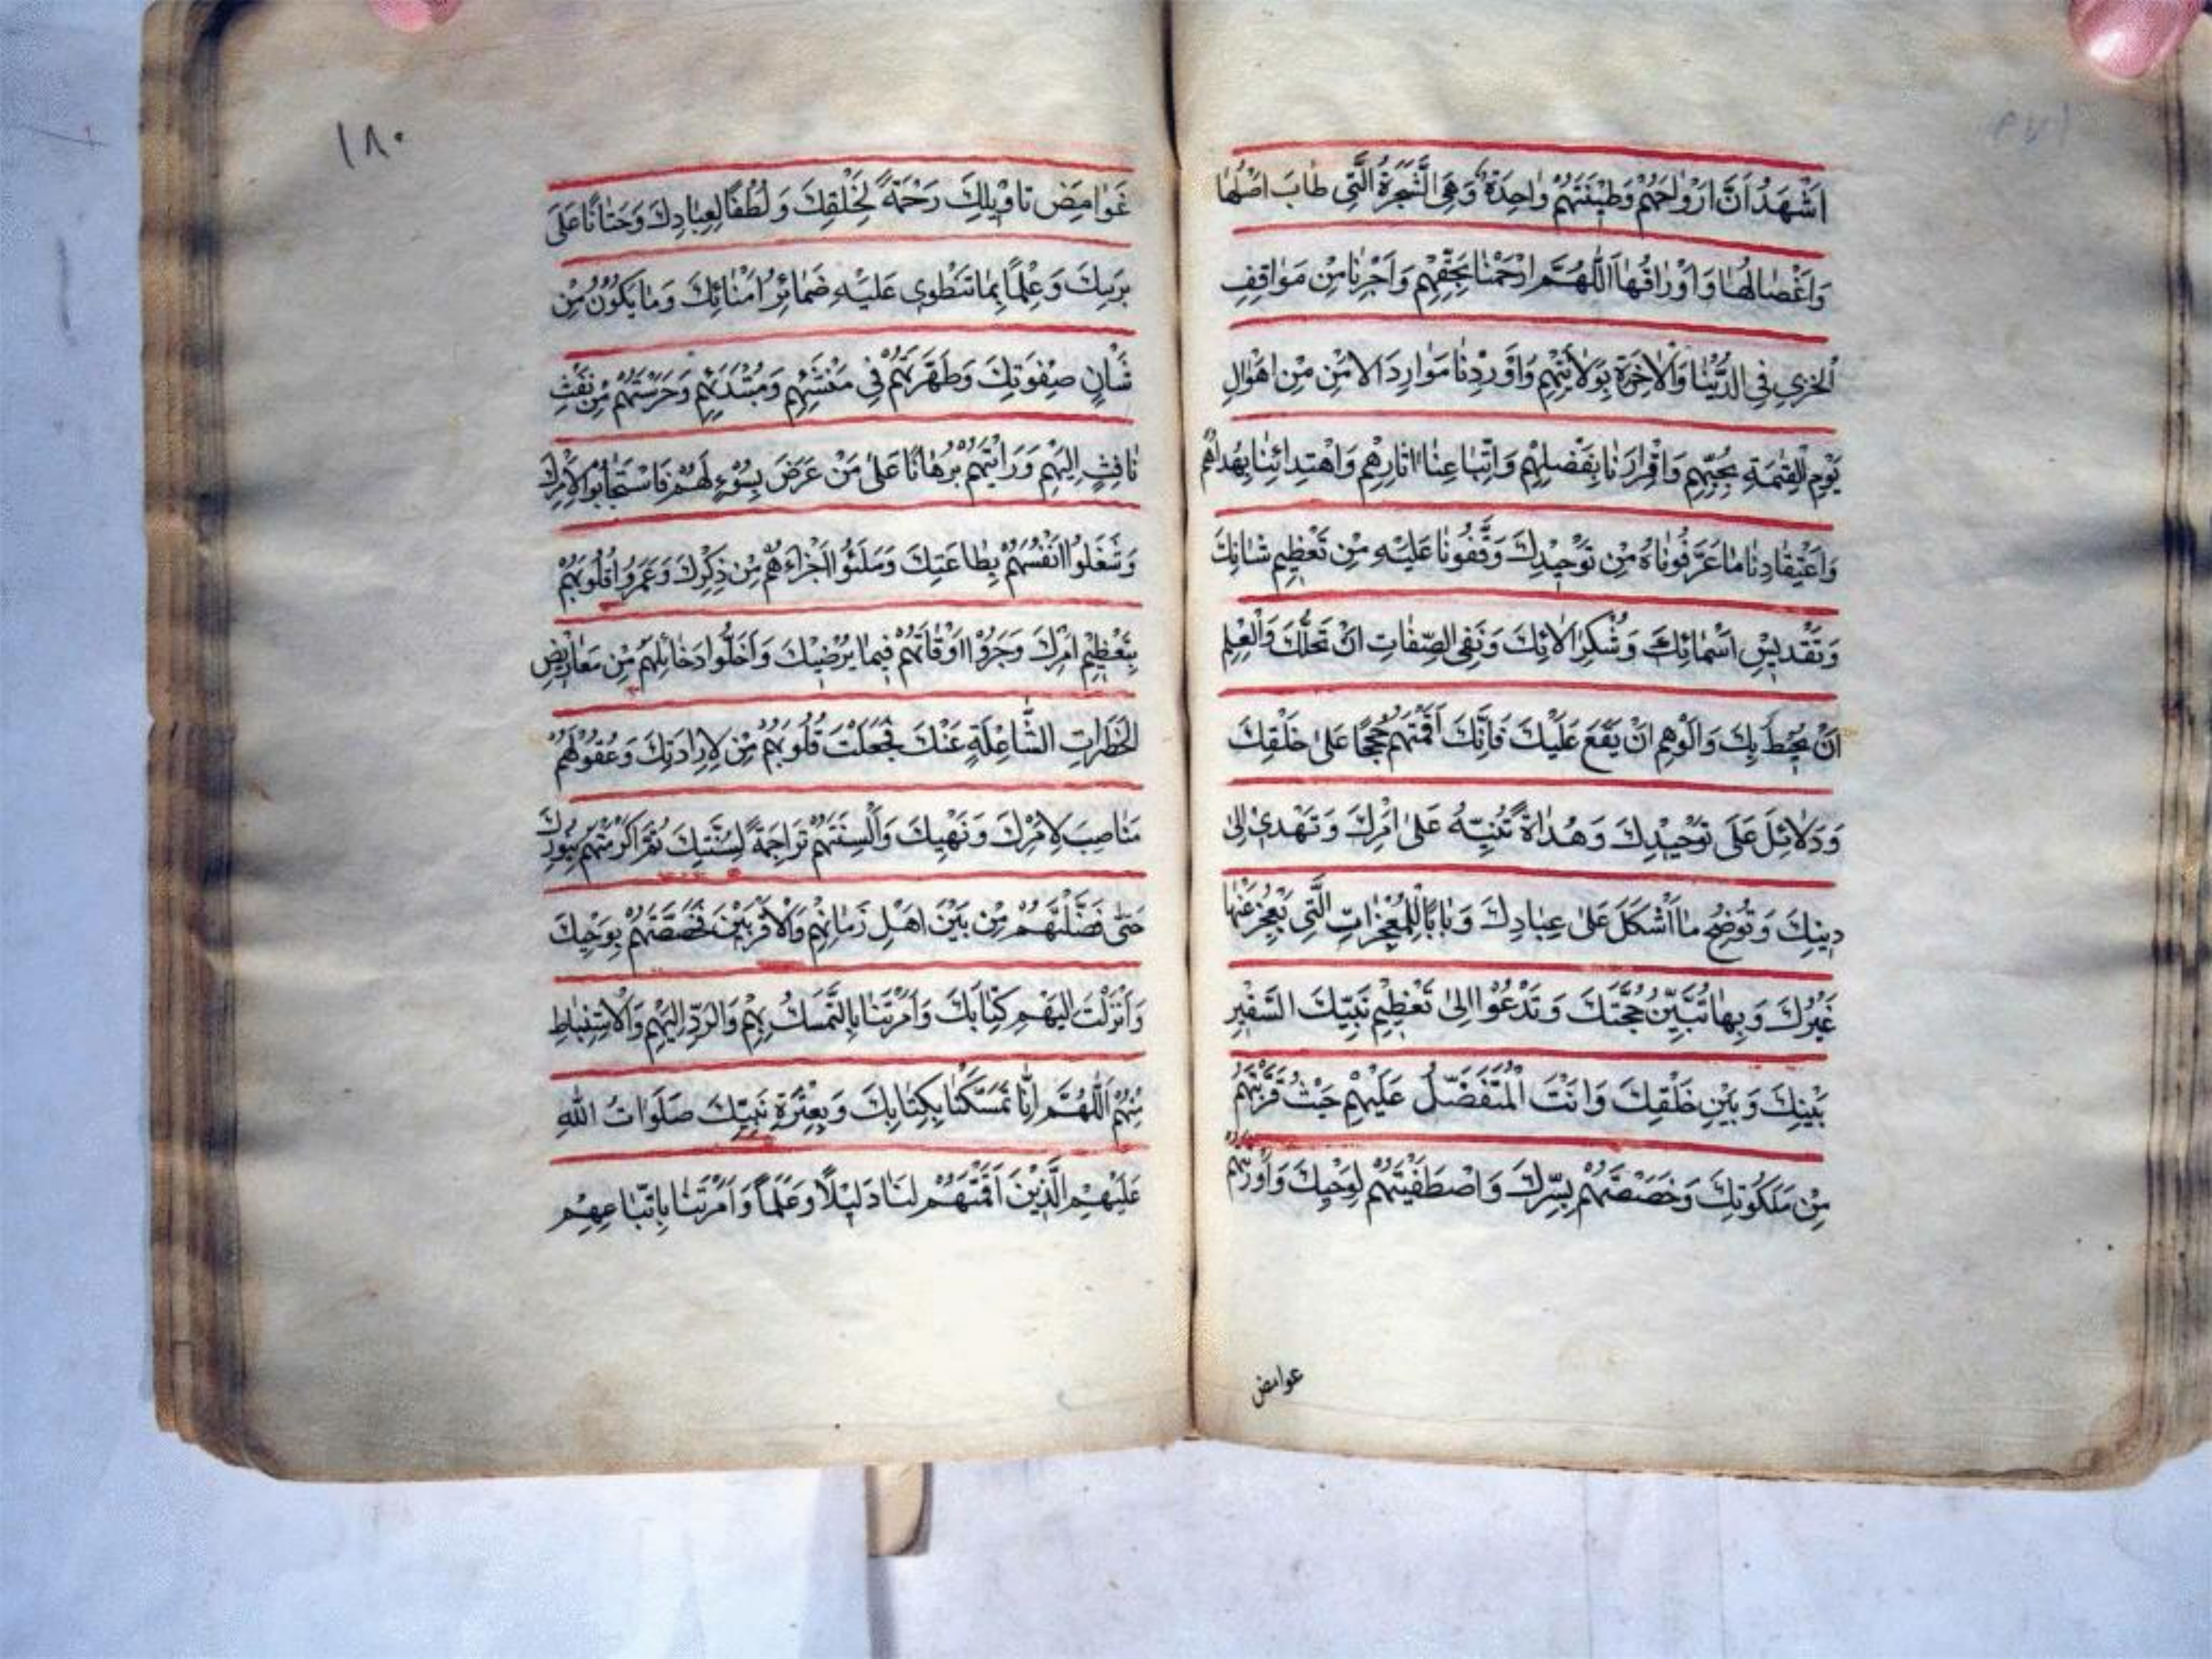 اَشْهَدُ اَنَّ اَرْوٰاحَهُمْ وَطينَتَهُمْ وٰاحِدَةٌ وَهِيَ الشَّجَرَةُ الَّتي طٰابَ اَصْلُهٰا
وَاَغْصٰانُهٰا وَاَوْرٰاقُهٰا اَللّٰهُمَّ ارْحَمْنٰا بِحَقِّهِمْ وَاَجِرْنٰا مِنْ مَوٰاقِفِ
الْخِزْيِ فِي الدُّنْيٰا وَالْاٰخِرَةِ بِوِلاٰيَتِهِمْ وَاَوْرِدْنٰا مَوٰارِدَ الْاَمْنِ مِنْ اَهْوٰالِ
يَوْمِ الْقِيٰمَةِ بِحُبِّهِمْ وَاِقْرٰارِنٰا بِفَضْلِهِمْ وَاتِّبٰاعِنٰا اٰثٰارَهُمْ وَاهْتِدٰائِنٰا بِهُدٰاهُمْ
وَاعْتِقٰادِنٰا مٰا عَرَّفُونٰاهُ مِنْ تَوْحيدِكَ وَوَقَّفُونٰا عَلَيْهِ مِنْ تَعْظيمِ شَانِكَ
وَتَقْديسِ اَسْمٰائِكَ وَشُكْرِ اٰلاٰئِكَ وَنَفْيِ الصِّفٰاتِ اَنْ تَحُلَّكَ وَالْعِلْمِ
اَنْ يُحيطَ بِكَ وَالْوَهْمِ اَنْ يَقَعَ عَلَيْكَ فَاِنَّكَ اَقَمْتَهُمْ حُجَجًا عَلىٰ خَلْقِكَ
وَدَلاٰئِلَ عَلىٰ تَوْحيدِكَ وَهُدٰاةً تُنَبِّهُ عَلىٰ اَمْرِكَ وَتَهْدي اِلىٰ
دينِكَ وَتُوضِحُ مٰا اَشْكَلَ عَلىٰ عِبٰادِكَ وَبٰابًا لِلْمُعْجِزٰاتِ الَّتي يَعْجِزُ عَنْهٰا
غَيْرُكَ وَبِهٰا تُبَيِّنُ حُجَّتَكَ وَتَدْعُوا اِلىٰ تَعْظيمِ نَبِيِّكَ السَّفيرِ
بَيْنَكَ وَبَيْنَ خَلْقِكَ وَاَنْتَ الْمُتَفَضِّلُ عَلَيْهِمْ حَيْثُ قَرَّبْتَهُمْ
مِنْ مَلَكُوتِكَ وَخَصَصْتَهُمْ بِسِرِّكَ وَاصْطَفَيْتَهُمْ لِوَحْيِكَ وَاَوْرَثْتَهُمْ
عوامض
١٨٠
غَوٰامِضَ تَاْويلِكَ رَحْمَةً لِخَلْقِكَ وَلُطْفًا لِعِبٰادِكَ وَحَنٰانًا عَلىٰ
بَرِيَّتِكَ وَعِلْمًا بِمٰا تَنْطَوي عَلَيْهِ ضَمٰائِرُ اُمَنٰائِكَ وَمٰا يَكُونُ مِنْ
شَأْنِ صِفْوَتِكَ وَطَهَّرْتَهُمْ في مَنْشَئِهِمْ وَمُبْتَدَئِهِمْ وَحَرَسْتَهُمْ مِنْ نَفْثِ
نٰافِثٍ اِلَيْهِمْ وَاَرَيْتَهُمْ بُرْهٰانًا عَلىٰ مَنْ عَرَضَ بِسُوْءٍ لَهُمْ فَاسْتَجٰابُوا لِاَمْرِكَ
وَشَغَلُوا اَنْفُسَهُمْ بِطٰاعَتِكَ وَمَلَئُوا اَجْزٰاءَهُمْ مِنْ ذِكْرِكَ وَعَمَرُوا قُلُوبَهُمْ
بِتَعْظيمِ اَمْرِكَ وَجَزَّوْا اَوْقٰاتَهُمْ فيمٰا يُرْضيكَ وَاَخْلَوْا دَخٰائِلَهُمْ مِنْ مَعٰاريضِ
الْخَطَرٰاتِ الشّٰاغِلَةِ عَنْكَ فَجَعَلْتَ قُلُوبَهُمْ مَكٰامِنَ لِاِرٰادَتِكَ وَعُقُولَهُمْ
مَنٰاصِبَ لِاَمْرِكَ وَنَهْيِكَ وَاَلْسِنَتَهُمْ تَرٰاجِمَةً لِسُنَّتِكَ ثُمَّ اَكْرَمْتَهُمْ بِنُورِكَ
حَتّىٰ فَضَّلْتَهُمْ مِنْ بَيْنِ اَهْلِ زَمٰانِهِمْ وَالْاَقْرَبينَ فَخَصَصْتَهُمْ بِوَحْيِكَ
وَاَنْزَلْتَ اِلَيْهِمْ كِتٰابَكَ وَاَمَرْتَنٰا بِالتَّمَسُّكِ بِهِمْ وَالرَّدِّ اِلَيْهِمْ وَالْاِسْتِنْبٰاطِ
مِنْهُمْ اَللّٰهُمَّ اِنّٰا تَمَسَّكْنٰا بِكِتٰابِكَ وَبِعِتْرَةِ نَبِيِّكَ صَلَوٰاتُ اللّٰهِ
عَلَيْهِمِ الَّذينَ اَقَمْتَهُمْ لَنٰا دَليلاً وَعَلَمًا وَاَمَرْتَنٰا بِاتِّبٰاعِهِمْ